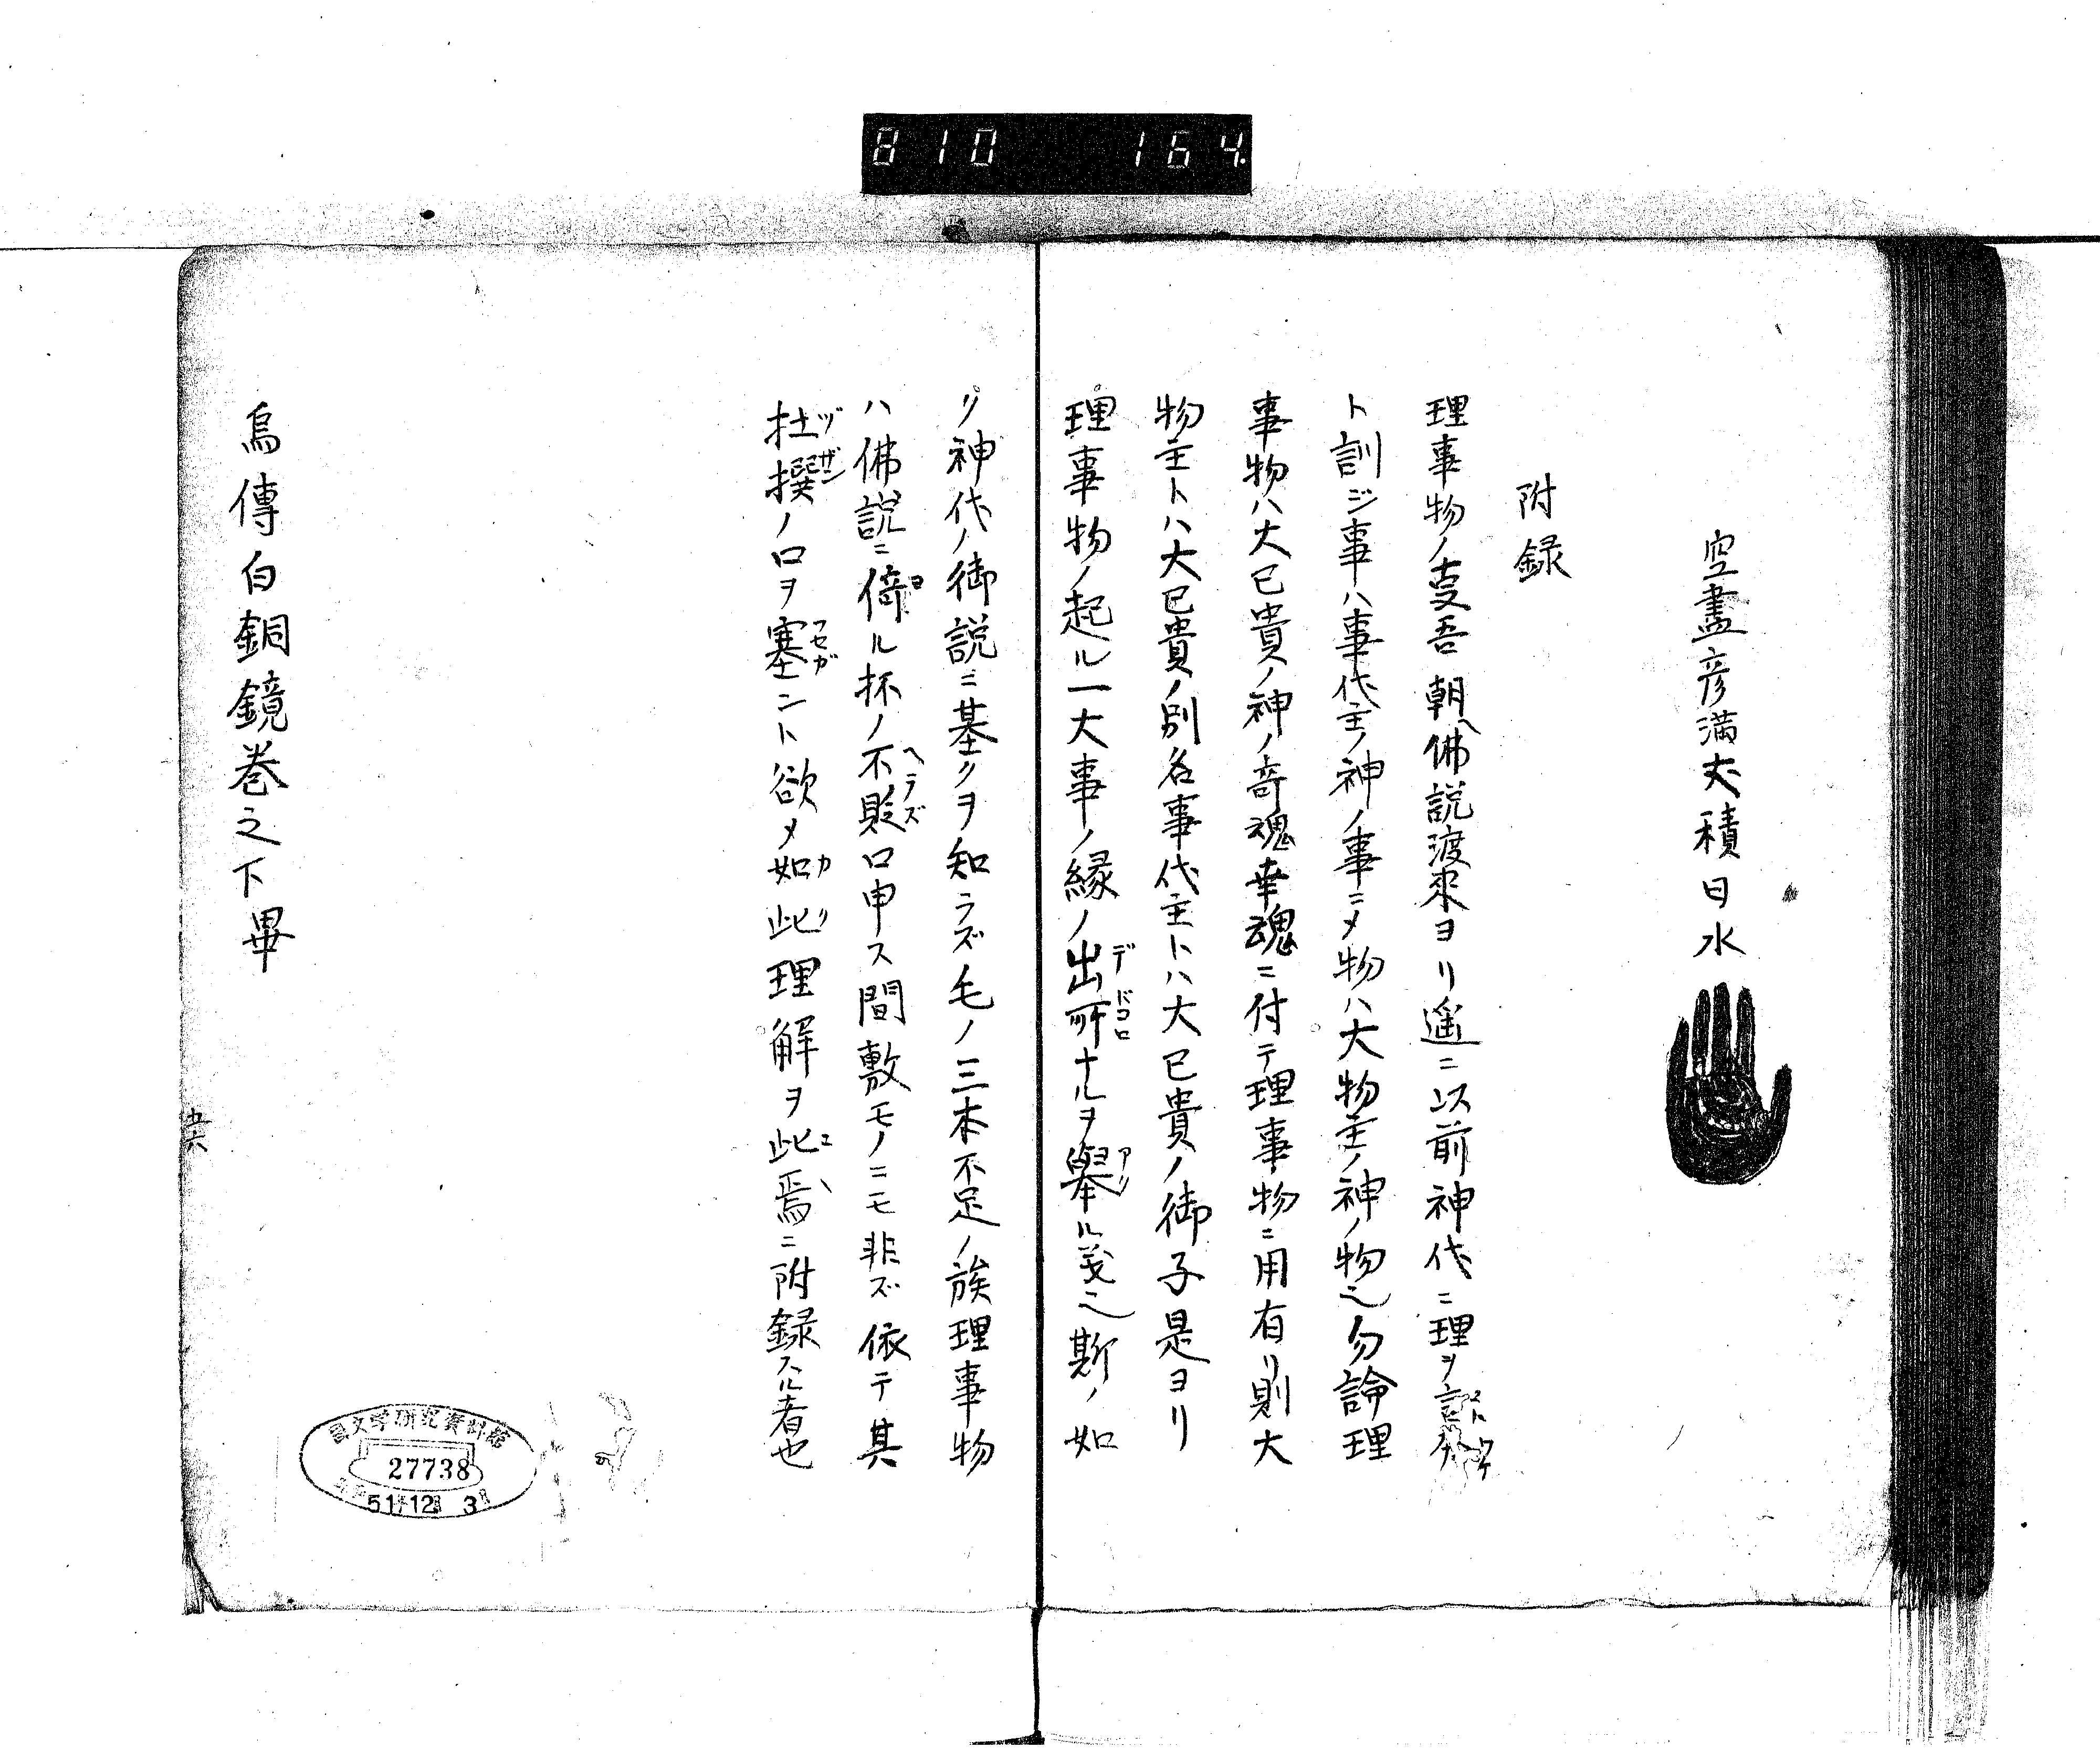 810 164.
空盡彦滿大積日水
附録
理事物ノ叓吾朝ヘ佛説渡來ヨリ遥ニ以前神代ニ理ヲ
ト訓ジ事ハ事代主ノ神ノ事ニメ物ハ大物主ノ神ノ物也勿論理
事物ハ大已貴ノ神ノ奇魂幸魂ニ付テ理事物ニ用有リ則大
物主トハ大已貴ノ別名事代主トハ大已貴ノ御子是ヨリ
理事物ノ起ル一大事ノ縁ノ出所ナルヲ擧ル義也斯ノ如
デドコロ
アグ
リ神代ノ御説ニ基クヲ知ラズ毛ノ三本不足ノ族理事物
ハ佛説ニ倚ル抔ノ不貶口申ス間敷モノニモ非ズ依テ其
ヨ
ヘラズ
杜撰ノ口ヲ塞ント欲メ如此理解ヲ此焉ニ附録スル者也
ヅザン
フセガ
カリ
烏傳白銅鏡巻之下畢
國文学研究資料館
27738
51.12. 3